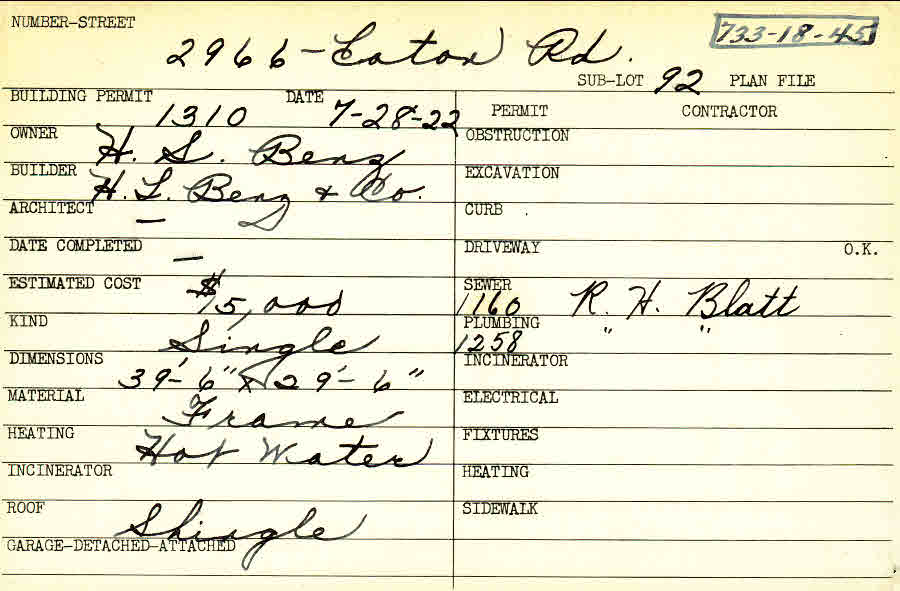 NUMBER-STREET 733-18-45
2966 - Eaton Rd.
SUB-LOT 92 PLAN FILE
BUILDING PERMIT 1310 DATE 7-28-22
PERMIT CONTRACTOR
OWNER H. S. Benz
OBSTRUCTION
BUILDER H. L. Benz & Co.
EXCAVATION
ARCHITECT —
CURB
DATE COMPLETED —
DRIVEWAY O.K.
ESTIMATED COST $15,000
SEWER 1160 R. H. Blatt
KIND Single
PLUMBING 1258 " "
DIMENSIONS 39'-6" x 29'-6"
INCINERATOR
MATERIAL Frame
ELECTRICAL
HEATING Hot Water
FIXTURES
INCINERATOR
HEATING
ROOF Shingle
SIDEWALK
GARAGE-DETACHED-ATTACHED